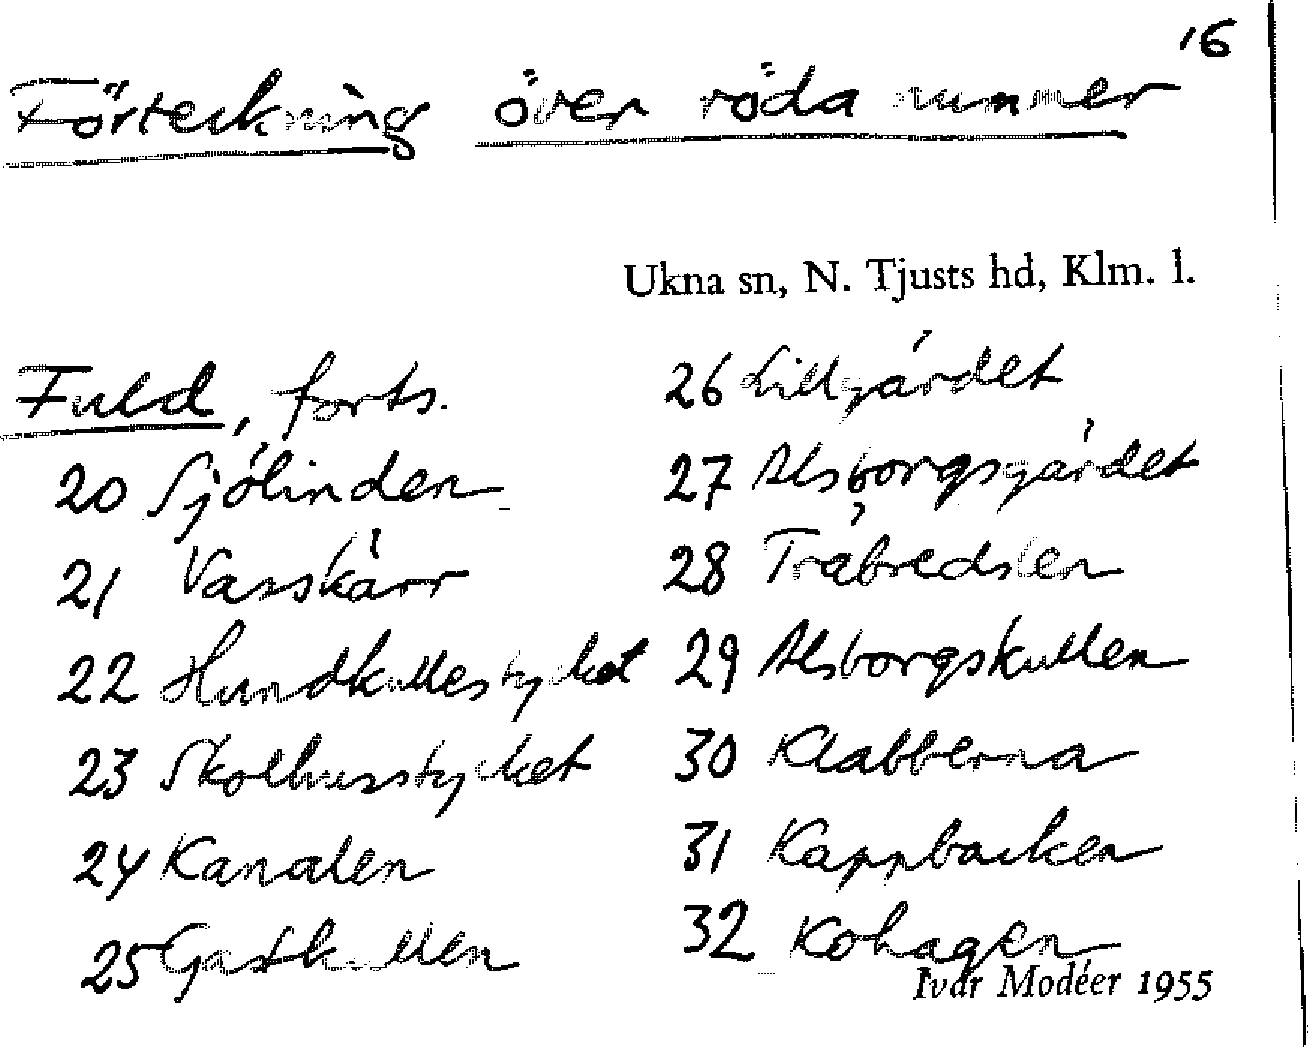 16
Förteckning över röda nummer
Ukna sn, N. Tjusts hd, Klm. l.
Fuld, forts.
20 Sjölinden
21 Vasskärr
22 Hundkullestycket
23 Skolhusstycket
24 Kanalen
25 Gastkullen
26 Lillgärdet
27 Alsborgsgärdet
28 Träbredslen
29 Alsborgskullen
30 Klabberna
31 Kappbacken
32 Kohagen
Ivar Modéer 1955